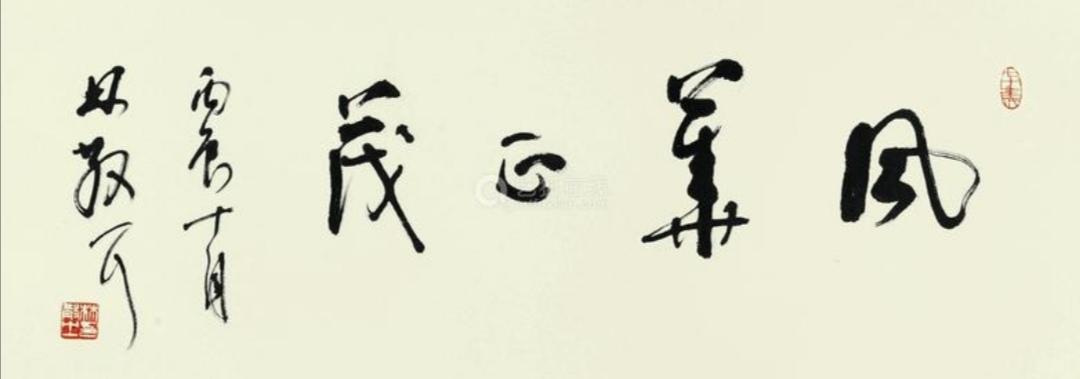 風華正茂
丙辰十月
林散耳